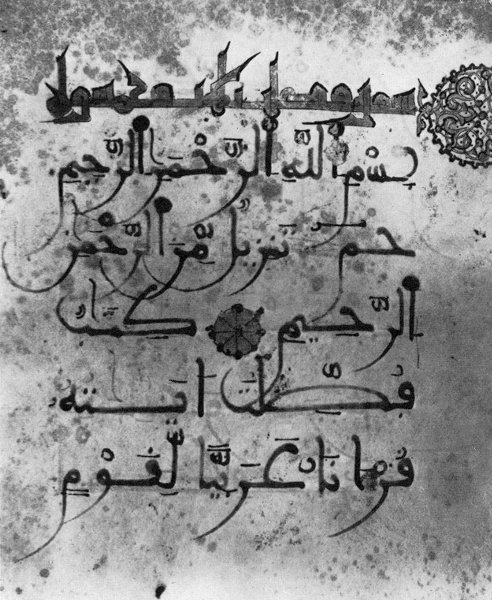 سورة
بِسْمِ اللَّهِ الرَّحْمَٰنِ الرَّحِيمِ
حمٓ تَنزِيلٌ مِّنَ الرَّحْمَٰنِ
الرَّحِيمِ كِتَٰبٌ
فُصِّلَتْ ءَايَٰتُهُ
قُرْءَانًا عَرَبِيًّا لِّقَوْمٍ